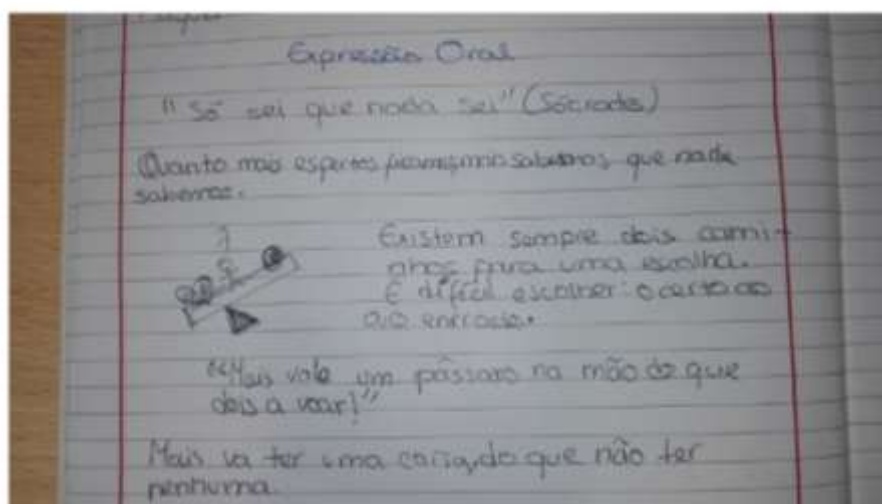 Expressão Oral
"Só sei que nada sei" (Sócrates)
Quanto mais espertos ficamos, mais sabemos que nada
sabemos.
Existem sempre dois cami-
nhos para uma escolha.
É difícil escolher: o certo ou
o errado.
"Mais vale um pássaro na mão do que
dois a voar!"
Mais va ter uma coisa, do que não ter
nenhuma